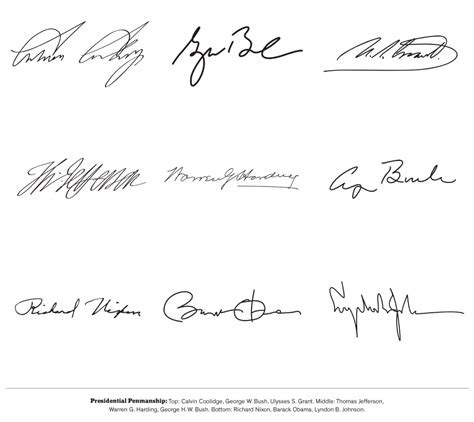 Calvin Coolidge
George Bush
U. S. Grant.
Th: Jefferson
Warren G Harding
G Bush
Richard Nixon
Barack Obama
Lyndon B. Johnson
Presidential Penmanship: Top: Calvin Coolidge, George W. Bush, Ulysses S. Grant. Middle: Thomas Jefferson,
Warren G. Harding, George H.W. Bush. Bottom: Richard Nixon, Barack Obama, Lyndon B. Johnson.